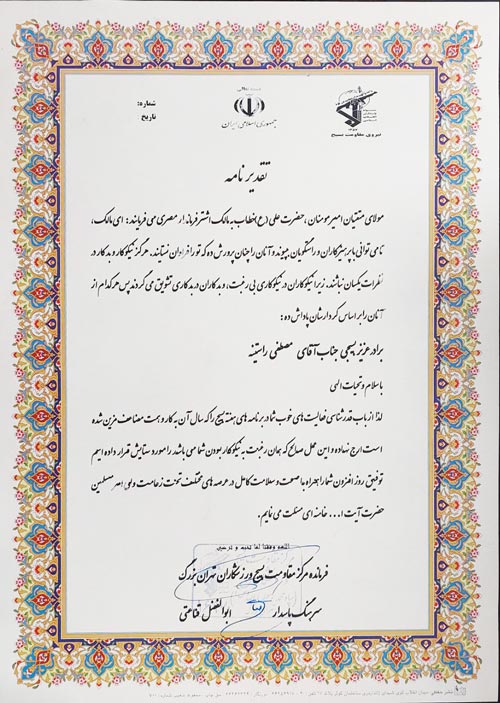 بسمه تعالی
جمهوری اسلامی ایران
نیروی مقاومت بسیج
شماره:
تاریخ
تقدیر نامه
مولای متقیان امیرمومنان ، حضرت علی (ع) خطاب به مالک اشتر فرماندار مصر می فرمایند : ای مالک ،
تا می توانی با پرهیزکاران و راستگویان بپیوند و آنان را چنان پرورش ده که تو را فراوان نستایند. هرگز نیکوکار و بدکار در
نظرات یکسان نباشند. زیرا نیکوکاران در نیکوکاری بی رغبت ، و بدکاران در بدکاری تشویق می گردند پس هر کدام از
آنان را بر اساس کردارشان پاداش ده :
برادر عزیز بسیجی جناب آقای مصطفی راستینه
با سلام و تحیات الهی
لذا از باب قدرشناسی فعالیت های خوب شما در برنامه های هفته بسیج را که سال آن به کار و همت مضاعف مزین شده
است ارج نهاده و این عمل صالح که همان رغبت به نیکوکار بودن شما می باشد را مورد ستایش قرار داده ایم
توفیق روز افزون شما را همراه با صحت و سلامت کامل در عرصه های مختلف تحت زعامت ولی امر مسلمین
حضرت آیت ا... خامنه ای مسئلت می نمایم .
اللهم وفقنا لما تحب و ترضی
فرمانده مرکز مقاومت بسیج ورزشکاران تهران بزرگ
سرهنگ پاسدار ابوالفضل قناعتی